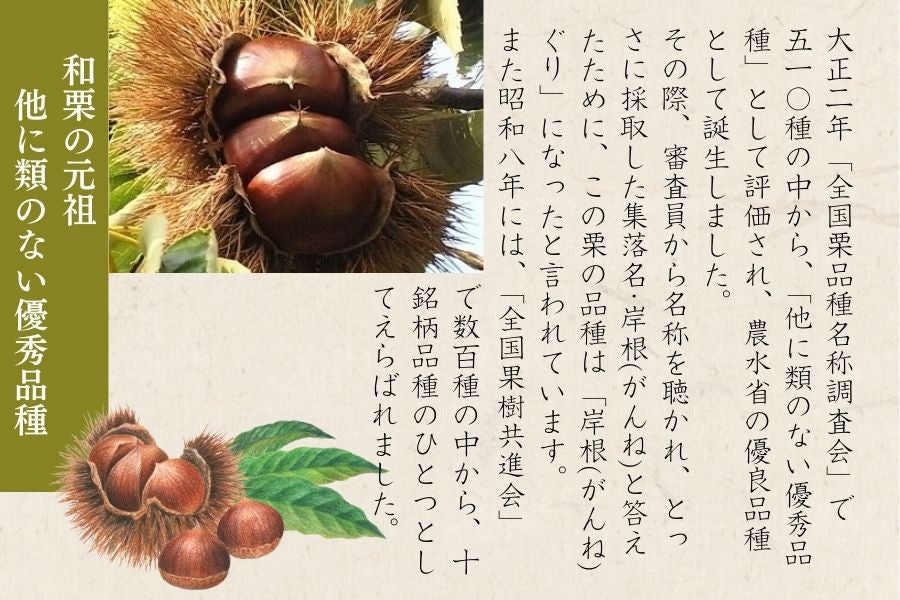 和栗の元祖
他に類のない優秀品種
大正二年「全国栗品種名称調査会」で
五一〇種の中から、「他に類のない優秀品
種」として評価され、農水省の優良品種
として誕生しました。
その際、審査員から名称を聴かれ、とっ
さに採取した集落名・岸根(がんね)と答え
たために、この栗の品種は「岸根(がんね)
ぐり」になったと言われています。
また昭和八年には、「全国果樹共進会」
で数百種の中から、十
銘柄品種のひとつとし
てえらばれました。